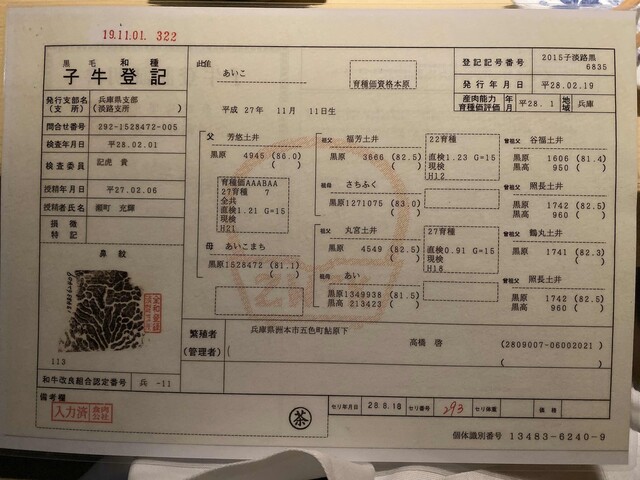 19.11.01. 322
黒毛和種
子牛登記
発行支部名 兵庫県支部
(支所) (淡路支所)
問合せ番号 292-1528472-005
検査年月日 平28.02.01
検査委員 記虎 貴
授精年月日 平27.02.06
授精者氏名 充輝
損徴
特記
鼻紋
113
和牛改良組合認定番号 兵 -11
備考欄
入力済
あいこ
育種価資格本原
平成 27年 11月 11日生
登記記号番号 2015子淡路黒
6835
発行年月日 平28.02.19
産肉能力 年
育種価評価 月 平28.1 地域 兵庫
父 芳悠土井
黒原 4945 (86.0)
育種価AAABAA
27育種 7
全共
直検1.21 G=15
現検
H21
母 あいこまち
黒原1528472 (81.1)
祖父 福芳土井
黒原 3666 (82.5)
祖母 さちふく
黒原1271075 (83.0)
祖父 丸宮土井
黒原 4549 (82.5)
祖母 あい
黒原1349938 (81.5)
黒高 213423( )
22育種
直検1.23 G=15
現検
H12
27育種
直検0.91 G=15
現検
H18
曽祖父 谷福土井
黒原 1606 (81.4)
黒高 950( )
曽祖父 照長土井
黒原 1742 (82.5)
黒高 960( )
曽祖父 鶴丸土井
黒原 1741 (82.3)
曽祖父 照長土井
黒原 1742 (82.5)
黒高 960( )
繁殖者
(管理者)
兵庫県洲本市五色町鮎原下
高橋 啓 (2809007-06002021)
茶
セリ年月日 28.8.18 セリ番号 293 セリ体重 価格
個体識別番号 13483-6240-9